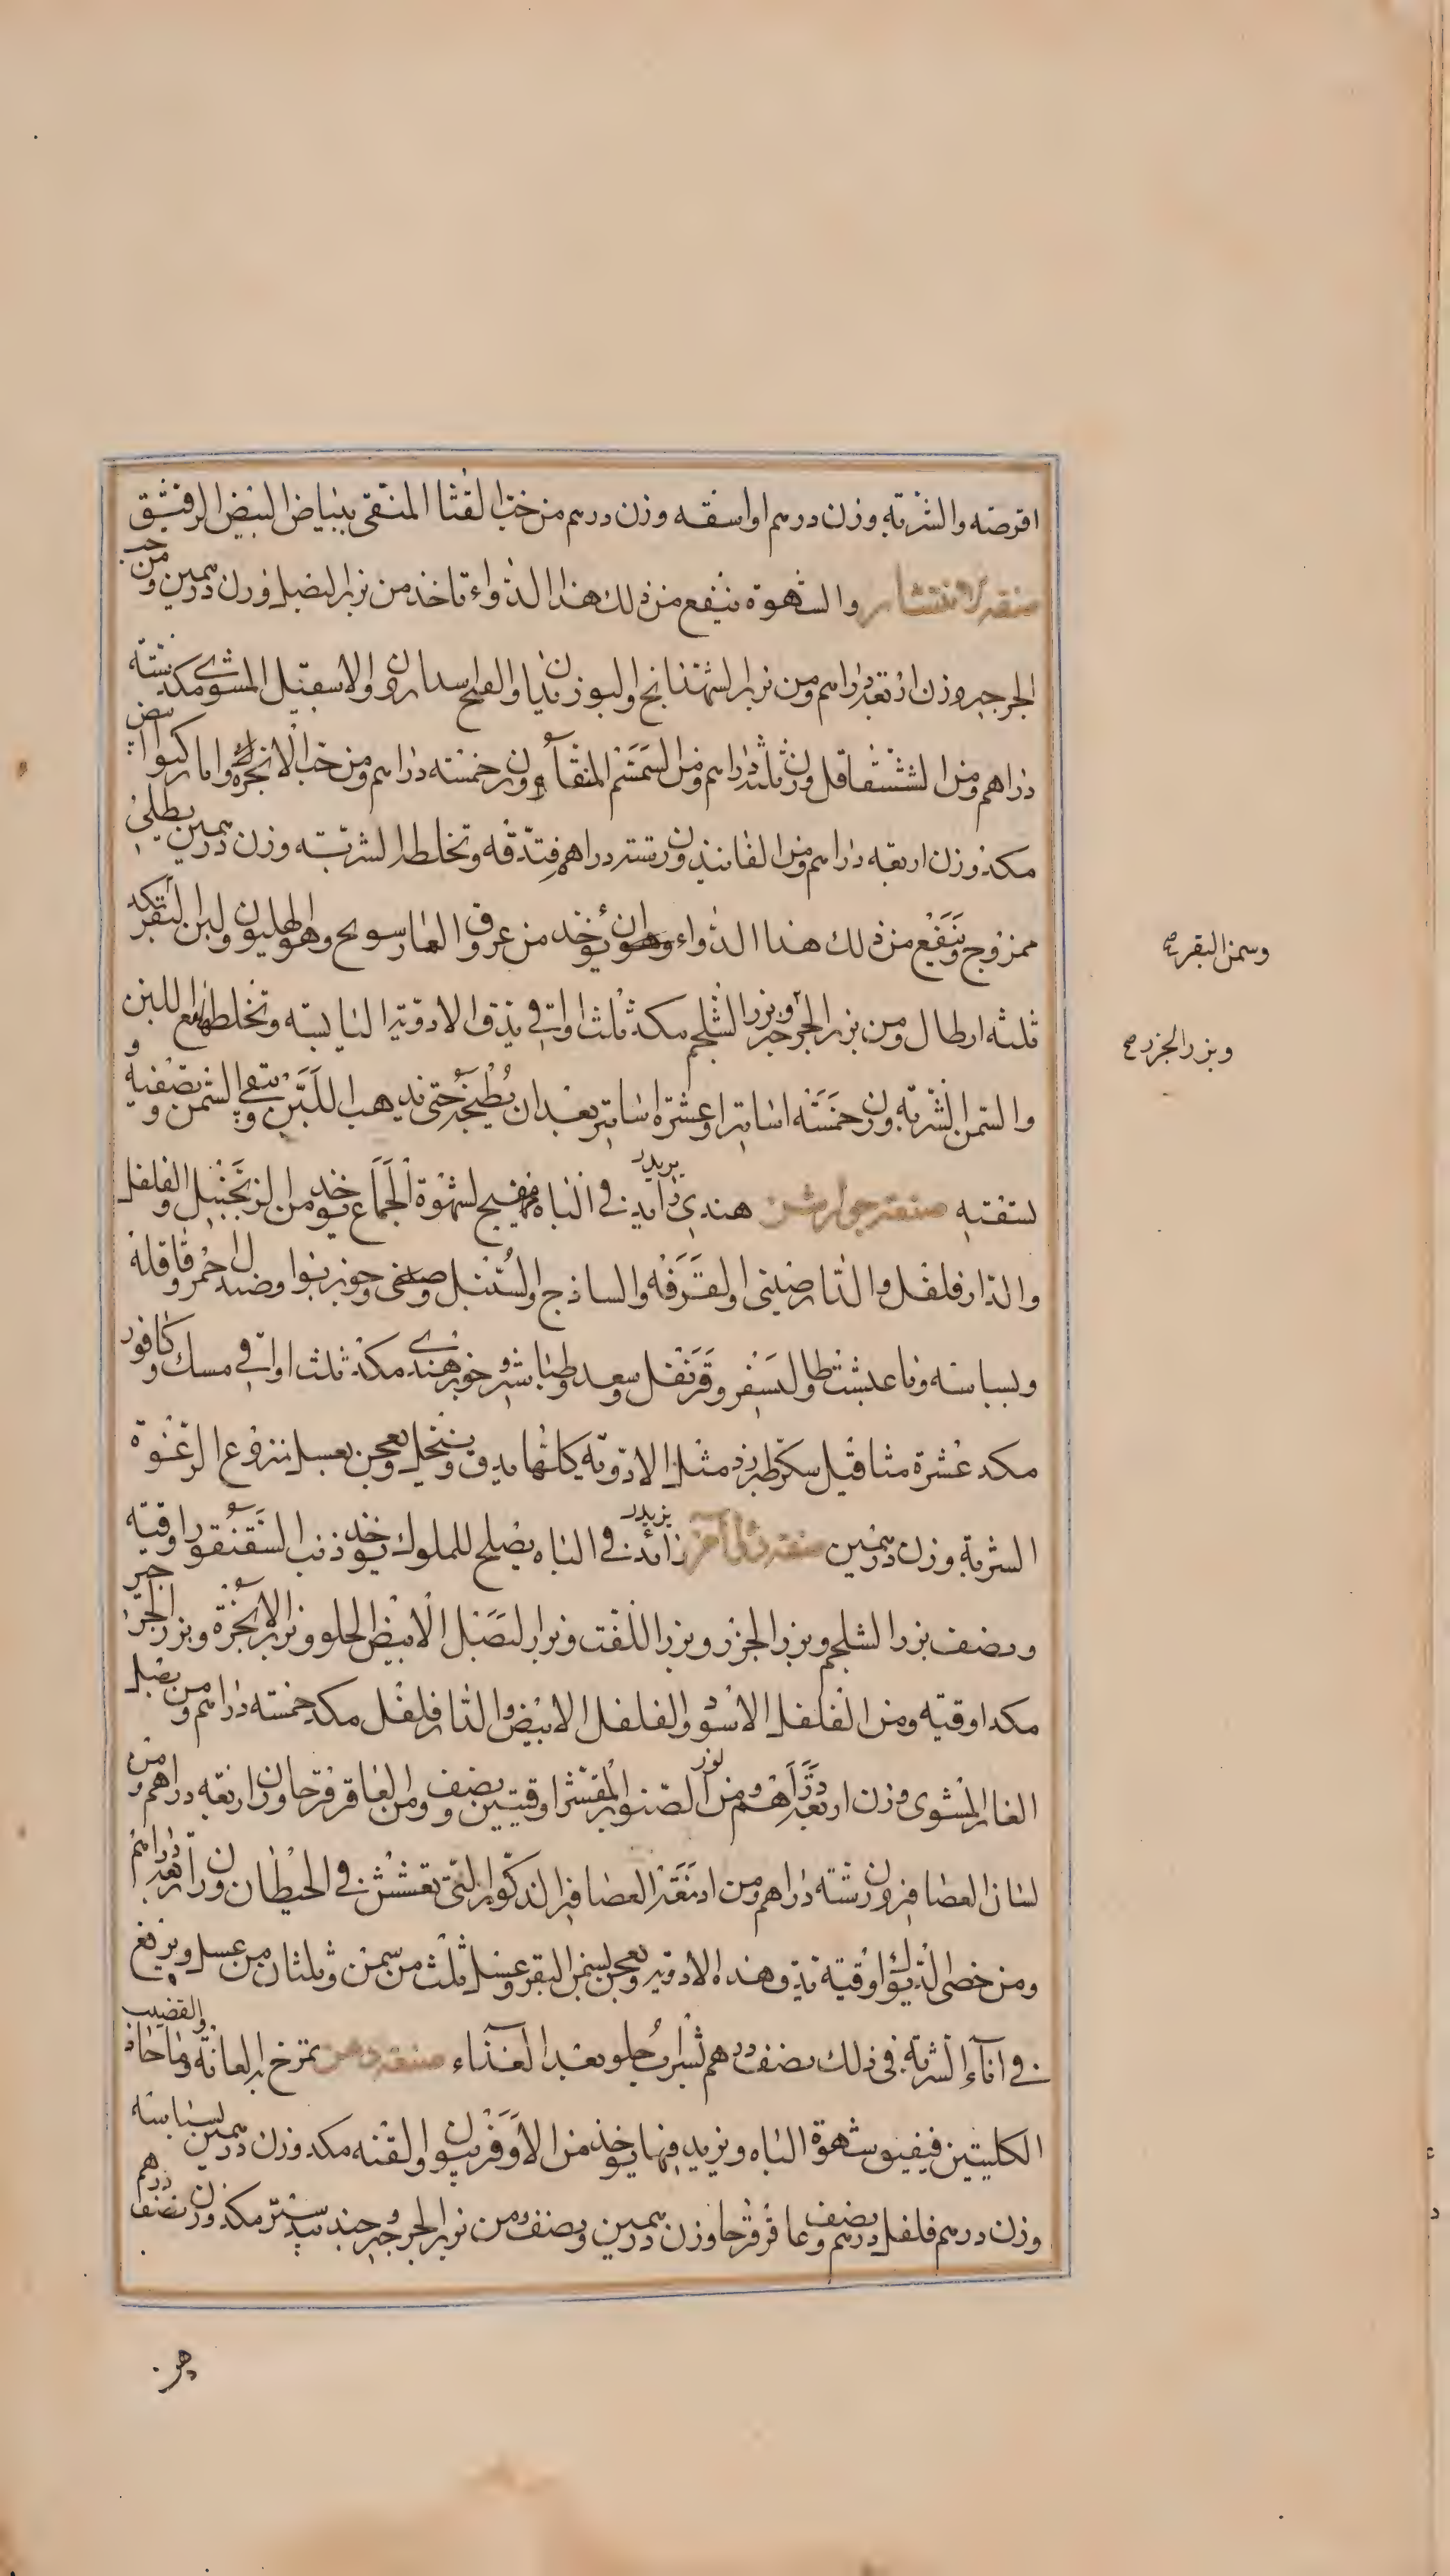 اقرصه والشربة وزن درهم او اسفه وزن درهم من حب القثا المنقى ببياض البيض الرقيق
صنعة الانتشار والشهوة ينفع من ذلك هذا الدواء تاخذ من بزر البصل وزن درهمين ومن حب
الجرجير وزن اربعة دراهم ومن بزر الشهدانج والبوزندان والاسقيل المشوى مكد ستة
دراهم ومن الشقاقل وزن ثلثة دراهم ومن السمسم المنقا وزن خمسة دراهم ومن حب الانجرة
مكد وزن اربعة دراهم ومن الفانيذ وزن ستة دراهم فتدقه وتخلط الشربة وزن درهمين بطلى
ممزوج وينفع من ذلك هذا الدواء وهو ان يؤخذ من عروق وهو الهليون ولبن البقر مكد
وسمن البقر صح
ثلثة ارطال ومن بزر الجرجير وبزر الشلجم مكد ثلث اواقى يدق الادوية اليابسة وتخلطها مع اللبن
وبزر الجزر صح
والسمن الشربة وزن خمسة اساتير او عشرة اساتير بعد ان يطبخه حتى يذهب اللبن ويبقى السمن وتصفيه و
تسقيه صنعة جوارشن هندى زايد يزيد فى الباه مهيج لشهوة الجماع يوخذ من الزنجبيل والفلفل
والدارفلفل والدارصينى والقرفه والساذج والسنبل وجوزبوا وصندل احمر وقاقلة
وبسباسه وطاليسفر وقرنفل وسعد وطباشير وخيرهندى مكد ثلث اواقى مسك وكافور
مكد عشرة مثاقيل سكر طبرزد مثل الادوية كلها يدق وينخل ويعجن بعسل منزوع الرغوة
الشربة وزن درهمين صنعة دواء آخر زائد يزيد فى الباه يصلح للملوك يوخذ ذنب السقنقور اوقية
ونصف بزر الشلجم وبزر الجزر وبزر اللفت وبزر البصل الابيض الحلو وبزر الانجرة وبزر الجرجير
مكد اوقية ومن الفلفل الاسود والفلفل الابيض والدارفلفل مكد خمسة دراهم ومن بصل
الفار المشوى وزن اربعة دراهم ومن لوز الصنوبر المقشر اوقيتين ونصف ومن العاقرقرحا وزن اربعة دراهم ومن
لسان العصافير وزن ستة دراهم ومن ادمغة العصافير الذكور التى تعشش فى الحيطان وزن اربعة دراهم
ومن خصى الديوك اوقية تدق هذه الادوية وتعجن بسمن البقر وعسل ثلث من سمن وثلثان من عسل ويرفع
فى اناء الشربة فى ذلك نصف درهم بشراب حلو بعد الغذاء صنعة دهن تمرخ به العانة والقضيب وما حاذ
الكليتين فيقوى شهوة الباه ويزيد فيها يوخذ من الافربيون والقنه مكد وزن درهمين بسباسة
وزن درهم فلفل درهم ونصف وعاقرقرحا وزن درهمين ونصف ومن بزر الجرجير وجندبيدستر مكد وزن نصف درهم